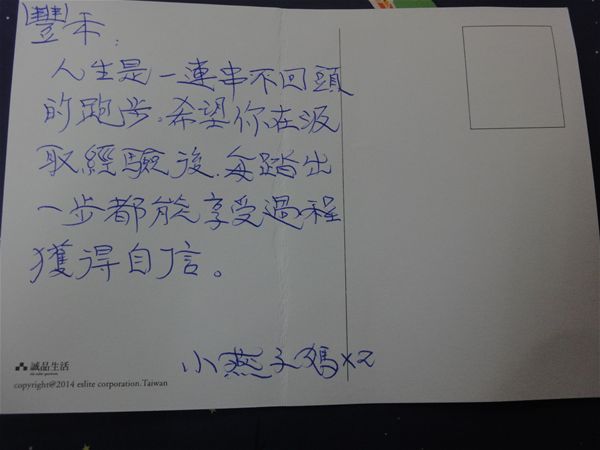 豐禾：
人生是一連串不回頭
的跑步。希望你在汲
取經驗後，每踏出
一步都能享受過程
獲得自信。
小燕子媽x2
誠品生活
copyright@2014 eslite corporation.Taiwan